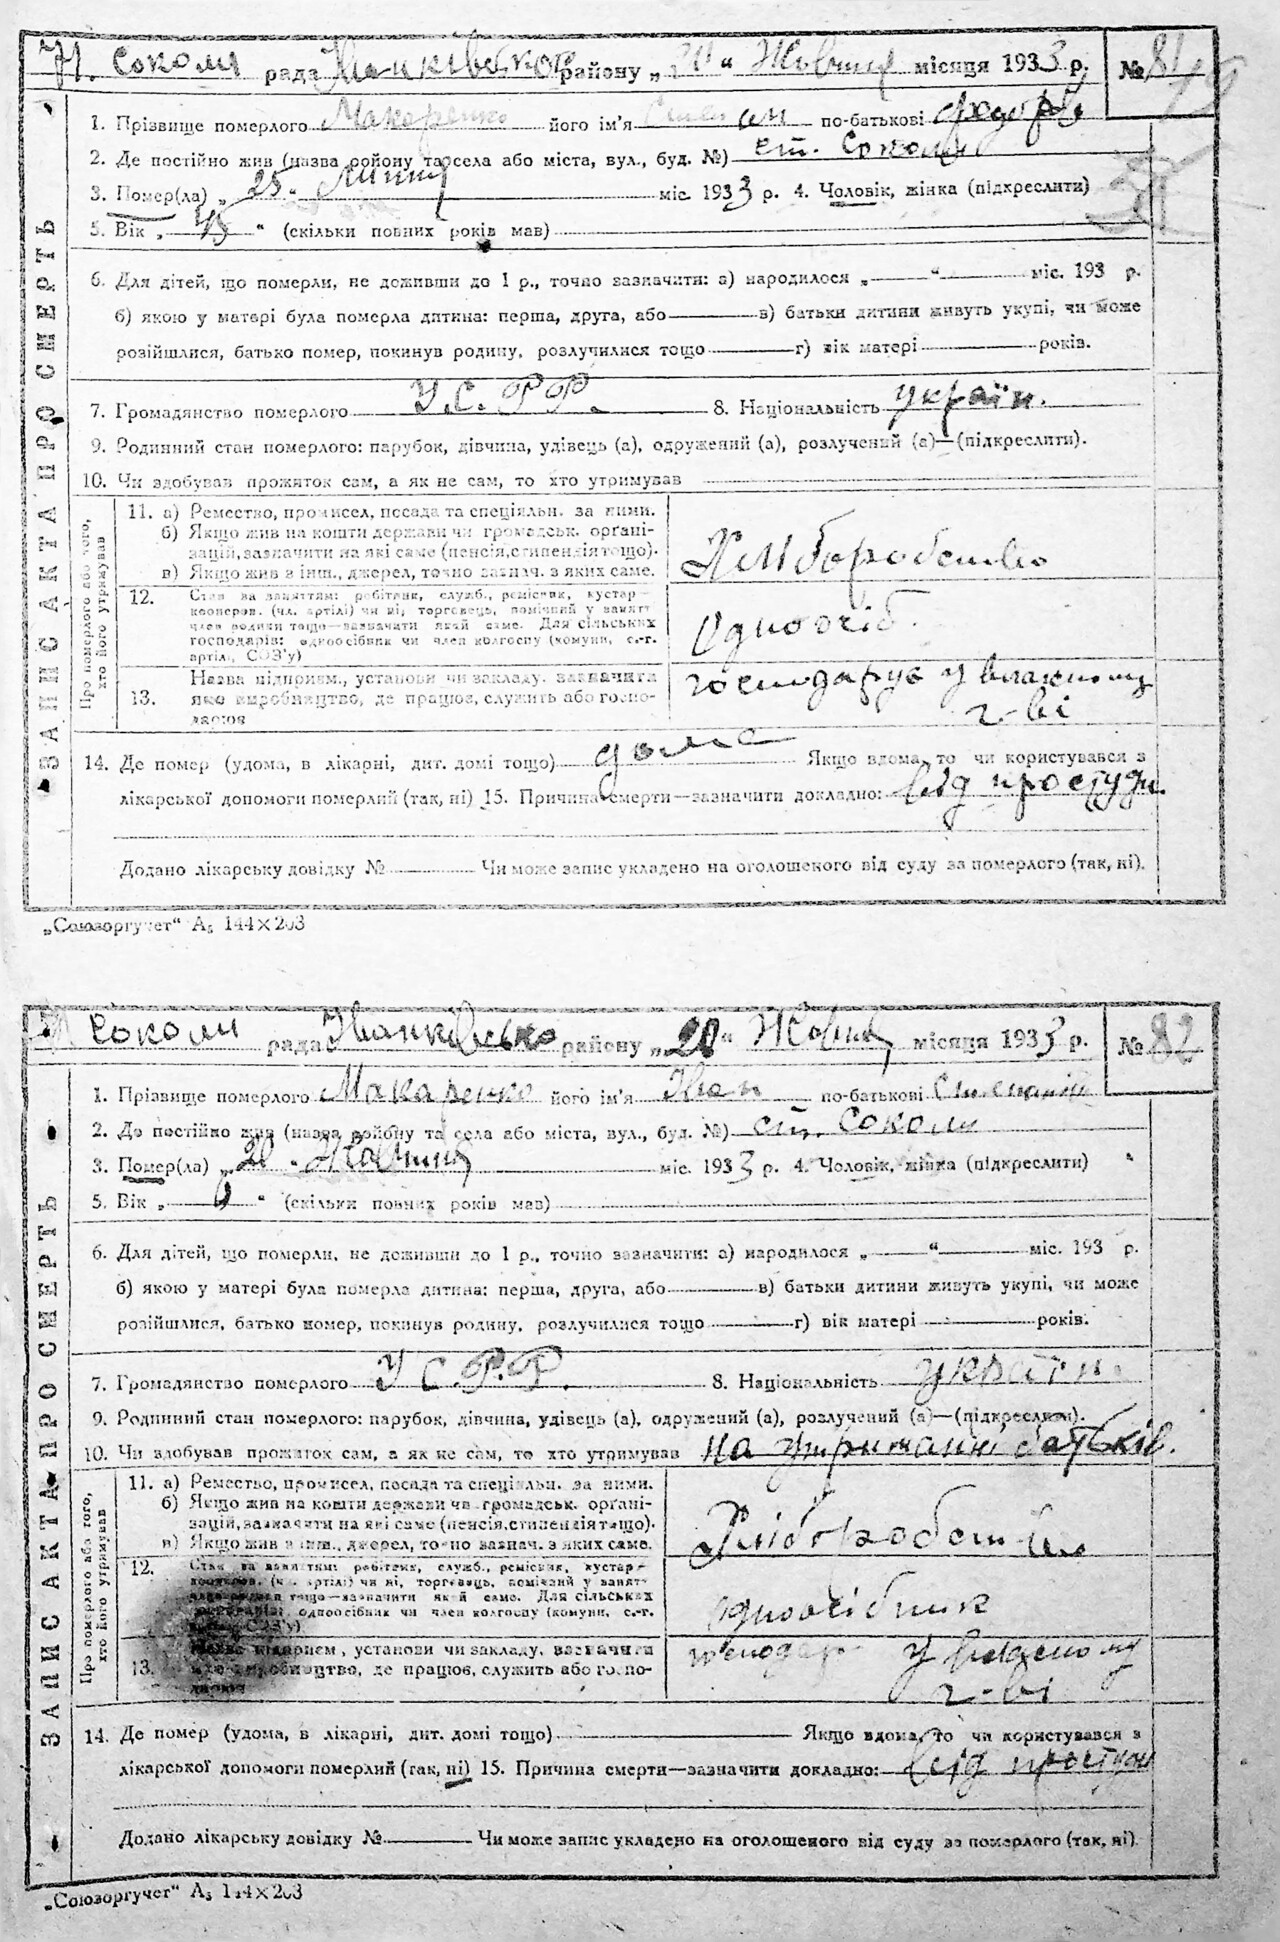 ЗАПИС АКТА ПРО СМЕРТЬ
Соколи рада Іванківської району „ “ Жовтня місяця 1933 р. № 81
1. Прізвище померлого Макаренко його ім'я Степан по-батькові Федорів
2. Де постійно жив (назва району та села або міста, вул., буд. №) ст. Соколи
3. Помер(ла) „ 25. міс. 1933 р. 4. Чоловік, жінка (підкреслити)
5. Вік „ “ (скільки повних років мав)
6. Для дітей, що померли, не доживши до 1 р., точно зазначити: а) народилося „ “ міс. 193 р.
б) якою у матері була померла дитина: перша, друга, або в) батьки дитини живуть укупі, чи може
розійшлися, батько помер, покинув родину, розлучилися тощо г) вік матері років.
7. Громадянство померлого У.С.Р.Р. 8. Національність україн.
9. Родинний стан померлого: парубок, дівчина, удівець (а), одружений (а), розлучений (а)—(підкреслити).
10. Чи здобував прожиток сам, а як не сам, то хто утримував
Про померлого або того,
хто його утримував
11. а) Ремество, промисел, посада та спеціяльн. за ними.
б) Якщо жив на кошти держави чи громадськ. органі-
зацій, зазначити на які саме (пенсія, стипендія тощо).
в) Якщо жив з інш., джерел, точно зазнач. з яких саме.
Хліборобство
12. Стан за заняттям: робітник, служб., ремісник, кустар—
кооперов. (чл. артілі) чи ні, торговець, помічний у занятт
член родини тощо—зазначити який саме. Для сільських
господарів: одноосібник чи член колгоспу (комуни, с.-г.
артіль, СОЗ'у)
Одноосіб.
13. Назва підприєм., установи чи закладу, зазначити
яке виробництво, де працює, служить або госпо-
дарює
господарює у власному
г-ві
14. Де помер (удома, в лікарні, дит. домі тощо) дома Якщо вдома, то чи користувався з
лікарської допомоги померлий (так, ні) 15. Причина смерти—зазначити докладно: від простуди
Додано лікарську довідку № Чи може запис укладено на оголошеного від суду за померлого (так, ні).
„Союзоргучет“ А5 144×203
ЗАПИС АКТА ПРО СМЕРТЬ
Соколи рада Іванківсько району „20“ Жовтня місяця 1933 р. № 82
1. Прізвище померлого Макаренко його ім'я Іван по-батькові Степанів
2. Де постійно жив (назва району та села або міста, вул., буд. №) ст. Соколи
3. Помер(ла) „ 20. Жовтня міс. 1933 р. 4. Чоловік, жінка (підкреслити)
5. Вік „ “ (скільки повних років мав)
6. Для дітей, що померли, не доживши до 1 р., точно зазначити: а) народилося „ “ міс. 193 р.
б) якою у матері була померла дитина: перша, друга, або в) батьки дитини живуть укупі, чи може
розійшлися, батько помер, покинув родину, розлучилися тощо г) вік матері років.
7. Громадянство померлого У С.Р.Р. 8. Національність україн.
9. Родинний стан померлого: парубок, дівчина, удівець (а), одружений (а), розлучений (а)—(підкреслити).
10. Чи здобував прожиток сам, а як не сам, то хто утримував на утриманні батьків.
Про померлого або того,
хто його утримував
11. а) Ремество, промисел, посада та спеціяльн. за ними.
б) Якщо жив на кошти держави чи громадськ. органі-
зацій, зазначити на які саме (пенсія, стипендія тощо).
в) Якщо жив з інш., джерел, точно зазнач. з яких саме.
Хліборобство
12. Стан за заняттям: робітник, служб., ремісник, кустар—
кооперов. (чл. артілі) чи ні, торговець, помічний у занятт
член родини тощо—зазначити який саме. Для сільських
господарів: одноосібник чи член колгоспу (комуни, с.-г.
артіль, СОЗ'у)
одноосібник
13. Назва підприєм., установи чи закладу, зазначити
яке виробництво, де працює, служить або госпо-
дарює
господар у власному
г-ві
14. Де помер (удома, в лікарні, дит. домі тощо) Якщо вдома, то чи користувався з
лікарської допомоги померлий (так, ні) 15. Причина смерти—зазначити докладно: від простуди
Додано лікарську довідку № Чи може запис укладено на оголошеного від суду за померлого (так, ні).
„Союзоргучет“ А5 144×203